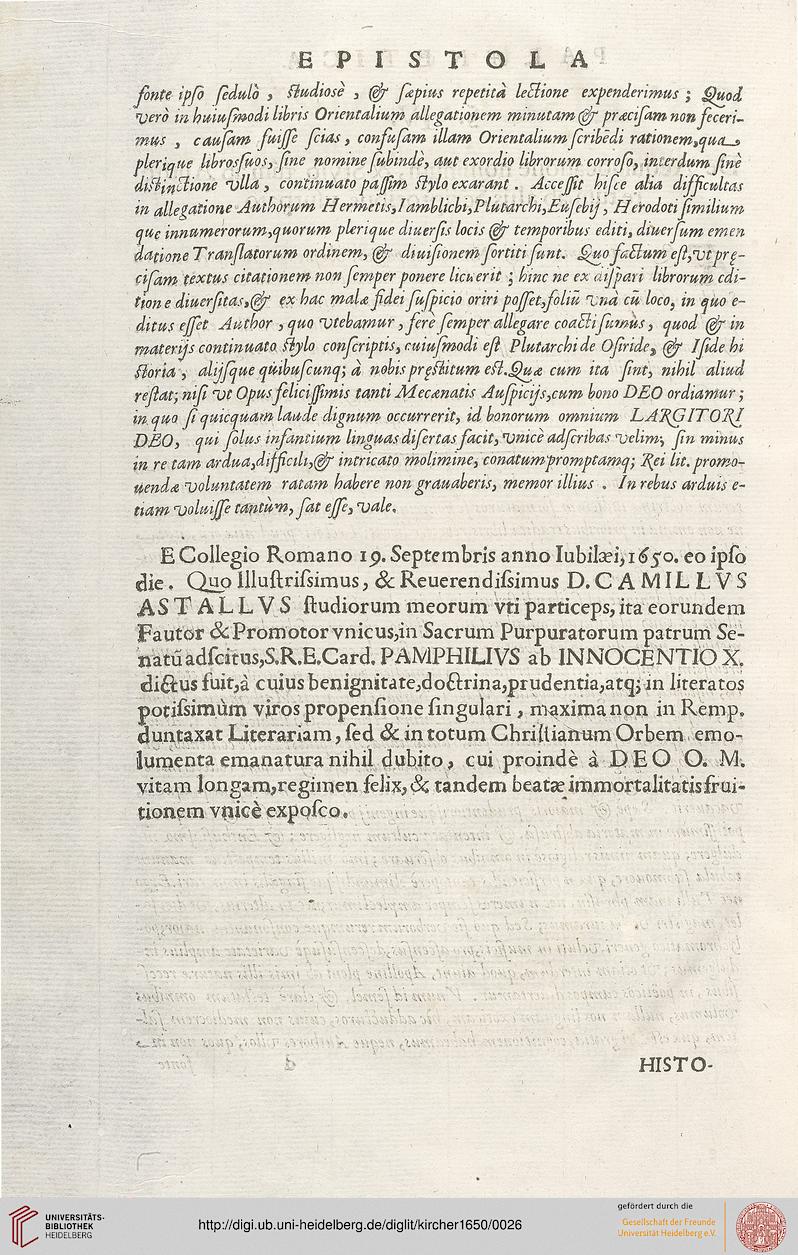 EPISTOLA
fonte ipso sedulò, studiosè, & sæpius repetità lectione expenderimus; Quod
verò in huiusmodi libris Orientalium allegationem minutam & præcisam non feceri-
mus, causam fuisse scias, confusam illam Orientalium scribēdi rationem, qua
plerique libros suos, sine nomine subindè, aut exordio librorum corroso, interdum sinè
distinctione vlla, continuato passim stylo exarant. Accessit hisce alia difficultas
in allegatione Authorum Hermetis, Iamblichi, Plutarchi, Eusebij, Herodoti similium
que innumerorum, quorum plerique diuersis locis & temporibus editi, diuersum emen
datione Translatorum ordinem, & diuisionem sortiti sunt. Quo factum est, vt prę-
cisam textus citationem non semper ponere licuerit; hinc ne ex dispari librorum edi-
tione diuersitas, & ex hac malæ fidei suspicio oriri posset, foliū vnà cū loco, in quo e-
ditus esset Author, quo vtebamur, ferè semper allegare coacti sumùs, quod & in
materijs continuato stylo conscriptis, cuiusmodi est Plutarchi de Osiride, & Iside hi
storia, alijsque quibuscunq; à nobis pręstitum est. Quæ cum ita sint, nihil aliud
restat; nisi vt Opus felicissimis tanti Mecænatis Auspicijs, cum bono DEO ordiamur;
in quo si quicquam laude dignum occurrerit, id bonorum omnium LARGITORI
DEO, qui solus infantium linguas disertas facit, vnicè adscribas velim; sin minus
in re tam ardua, difficili, & intricato molimine, conatum promptamq; Rei lit. promo-
uendæ voluntatem ratam habere non grauaberis, memor illius. In rebus arduis e-
tiam voluisse tantùm, sat esse, vale.
E Collegio Romano 19. Septembris anno Iubilæi, 1650. eo ipso
die. Quo Illustrissimus, & Reuerendissimus D. CAMILLVS
ASTALLVS studiorum meorum vti particeps, ita eorundem
Fautor & Promotor vnicus, in Sacrum Purpuratorum patrum Se-
natū adscitus, S.R.E. Card. PAMPHILIVS ab INNOCENTIO X.
dictus fuit, à cuius benignitate, doctrina, prudentia, atq; in literatos
potissimùm viros propensione singulari, maxima non in Remp.
duntaxat Literariam, sed & in totum Christianum Orbem emo-
lumenta emanatura nihil dubito, cui proindè à DEO O. M.
vitam longam, regimen felix, & tandem beatæ immortalitatis frui-
tionem vnicè exposco.
HISTO-
UNIVERSITÄTS-
BIBLIOTHEK
HEIDELBERG
http://digi.ub.uni-heidelberg.de/diglit/kircher1650/0026
gefördert durch die
Gesellschaft der Freunde
Universität Heidelberg e.V.